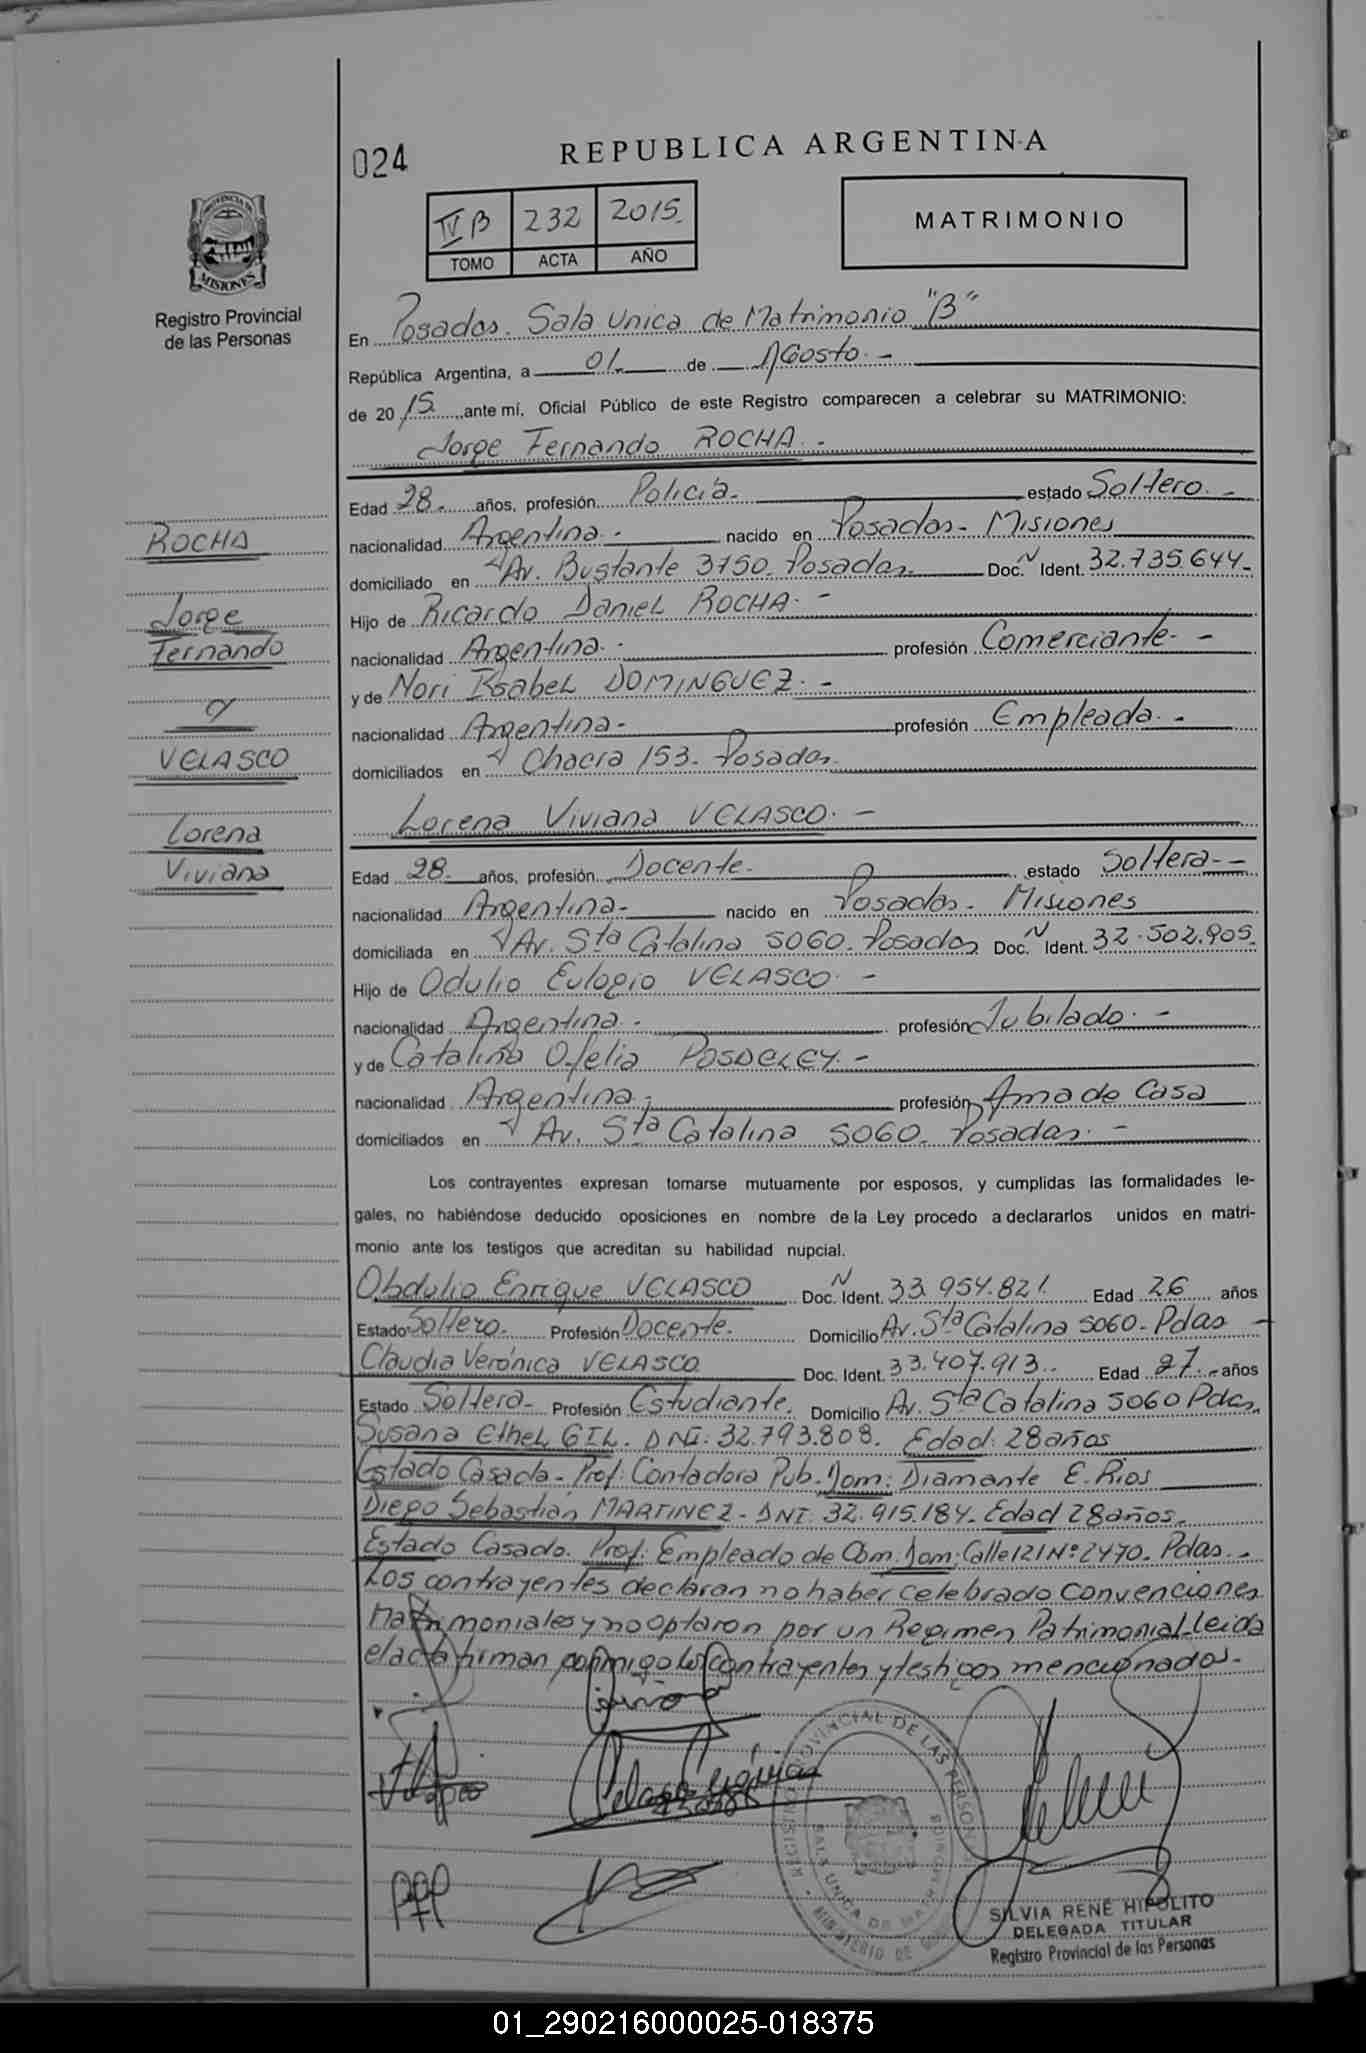 024
REPUBLICA ARGENTINA
IV B 232 2015
TOMO ACTA AÑO
MATRIMONIO
PROVINCIA DE
MISIONES
Registro Provincial
de las Personas
En Posadas. Sala Unica de Matrimonio "B"
República Argentina, a 01. de Agosto. -
de 20 15. ante mí, Oficial Público de este Registro comparecen a celebrar su MATRIMONIO:
Jorge Fernando ROCHA. -
Edad 28. años, profesión Policía. estado Soltero. -
nacionalidad Argentina. - nacido en Posadas - Misiones
domiciliado en Av. Bustante 3750. Posadas. Doc. N Ident. 32.735.644.
Hijo de Ricardo Daniel ROCHA. -
nacionalidad Argentina. - profesión Comerciante. -
y de Nori Isabel DOMINGUEZ. -
nacionalidad Argentina - profesión Empleada. -
domiciliados en Chacra 153. Posadas.
ROCHA
Jorge
Fernando
y
VELASCO
Lorena
Viviana
Lorena Viviana VELASCO. -
Edad 28. años, profesión Docente. estado Soltera. -
nacionalidad Argentina - nacido en Posadas - Misiones
domiciliada en Av. Sta Catalina 5060. Posadas Doc. N Ident. 32.502.905.
Hijo de Odulio Eulogio VELASCO. -
nacionalidad Argentina. - profesión Jubilado. -
y de Catalina Ofelia POSDELEY. -
nacionalidad Argentina. profesión Ama de Casa
domiciliados en Av. Sta Catalina 5060. Posadas. -
Los contrayentes expresan tomarse mutuamente por esposos, y cumplidas las formalidades le-
gales, no habiéndose deducido oposiciones en nombre de la Ley procedo a declararlos unidos en matri-
monio ante los testigos que acreditan su habilidad nupcial.
Obdulio Enrique VELASCO Doc. N Ident. 33.954.821. Edad 26 años
Estado Soltero. Profesión Docente. Domicilio Av. Sta Catalina 5060 - Pdas -
Claudia Verónica VELASCO Doc. Ident. 33.407.913. Edad 27. años
Estado Soltera - Profesión Estudiante. Domicilio Av. Sta Catalina 5060 Pdas.
Susana Ethel GIL. DNI: 32.793.808. Edad: 28 años
Estado Casada - Prof: Contadora Pub. Dom: Diamante E. Rios
Diego Sebastián MARTINEZ - DNI: 32.915.184. Edad 28 años.
Estado Casado. Prof: Empleado de Com. Dom: Calle 121 Nº 2470. Pdas. -
Los contrayentes declaran no haber celebrado convenciones
matrimoniales y no optaron por un Regimen Patrimonial. Leida
el acta firman conmigo los contrayentes y testigos mencionados. -
SILVIA RENÉ HIPOLITO
DELEGADA TITULAR
Registro Provincial de las Personas
01_290216000025-018375